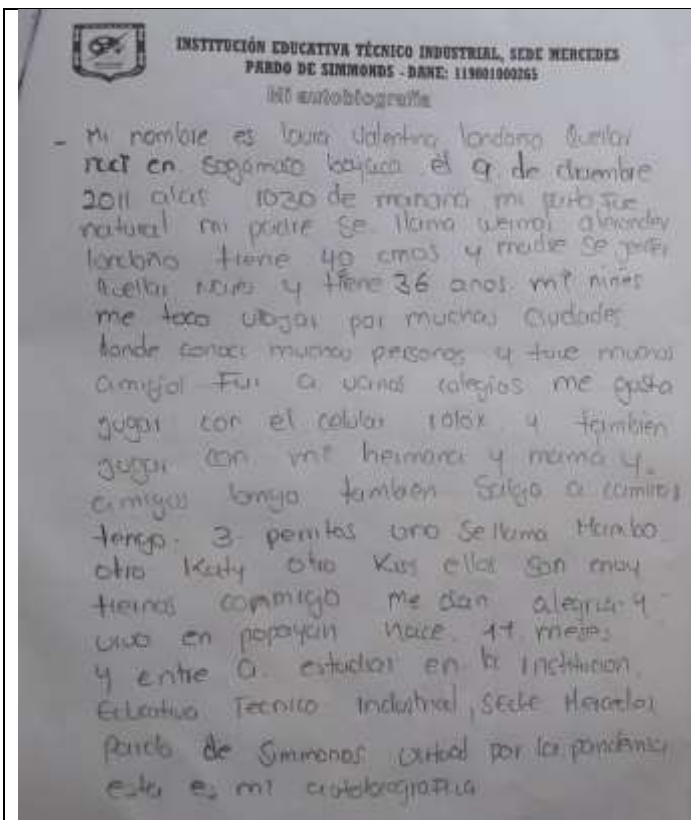 INSTITUCIÓN EDUCATIVA TÉCNICO INDUSTRIAL, SEDE MERCEDES
PARDO DE SIMMONDS - DANE: 119001000265
Mi autobiografía
- Mi nombre es laura Valentina londoño Quellar
naci en Sogamoso boyaca el 9 de diciembre
2011 alas 1030 de manana mi parto fue
natural mi padre se llama alexander
londoño tiene 40 años y madre se
Quellar y tiene 36 anos mi niñes
me toco por muchas ciudades
donde conoci muchas personas y tuve muchos
amigos Fui a varios colegios me gusta
jugar con el celular rolox y tambien
jugar con mi hermana y mama y
amigos tambien Salgo a
tengo 3 perritos uno se llama Mambo
otro Katy otro Kiss ellos son muy
tiernos conmigo me dan alegria y
vivo en popayan hace 11 meses
y entre a estudiar en la institucion
Educativa Tecnico Industrial, sede Mercedes
Pardo de Simmonos virtual por la pandemia
esta es mi